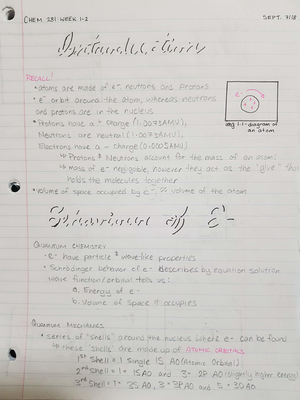 CHEM 281 WEEK 1-2
SEPT. 7/18
Introductions
RECALL!
• atoms are made of e⁻, neutrons and protons
• e⁻ orbit around the atom, whereas neutrons
and protons are in the nucleus
• Protons have a + charge (1.0073AMU),
Neutrons are neutral (1.0087AMU),
Electrons have a - charge (0.0005AMU)
↳ Protons & Neutrons account for the mass of an atom!
↳ mass of e⁻ negligible, however they act as the "glue" that
holds the molecules together
• volume of space occupied by e⁻ ≈ volume of the atom
img 1.1 - diagram of
an atom
QUANTUM CHEMISTRY
• e⁻ have particle & wavelike properties
• Schrodinger behavior of e⁻ describes by equation solution
wave function/orbital tells us:
a. Energy of e⁻
b. Volume of Space it occupies
QUANTUM MECHANICS
• series of "shells" around the nucleus where e⁻ can be found
↳ these "shells" are made up of ATOMIC ORBITALS
1st Shell = 1 single 1S AO (Atomic Orbital)
2nd Shell = 1 - 1S AO and 3 - 2P AO (slightly higher energy)
3rd Shell = 1 - 3S AO, 3 - 3P AO and 5 - 3D AO